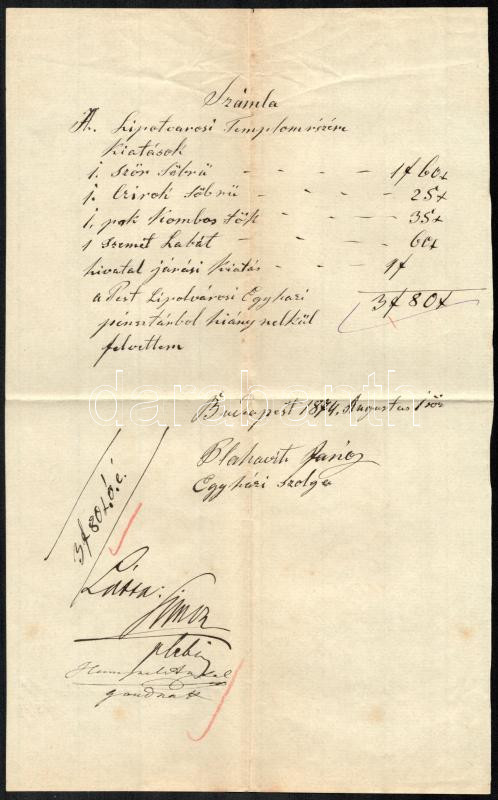 Számla
A. Lipotvarosi Templom részére
Kiatások
1. Szőr Söbrü - - - 1f 60x
1. Czirok Söbrü - - - 25x
1. pak Kombos - - - 35x
1 Szemét Labát - - - 60x
hivatal járási Kiatás - - 1f
a Pest Lipotvárosi Egyházi 3f 80x
pénsztárbol hiány nelkül
felvettem
Budapest 1874. Augustus 1
János
Egyházi szolga
3f 80x ö. é.
Látta:
Simor
gondnok
darabanth